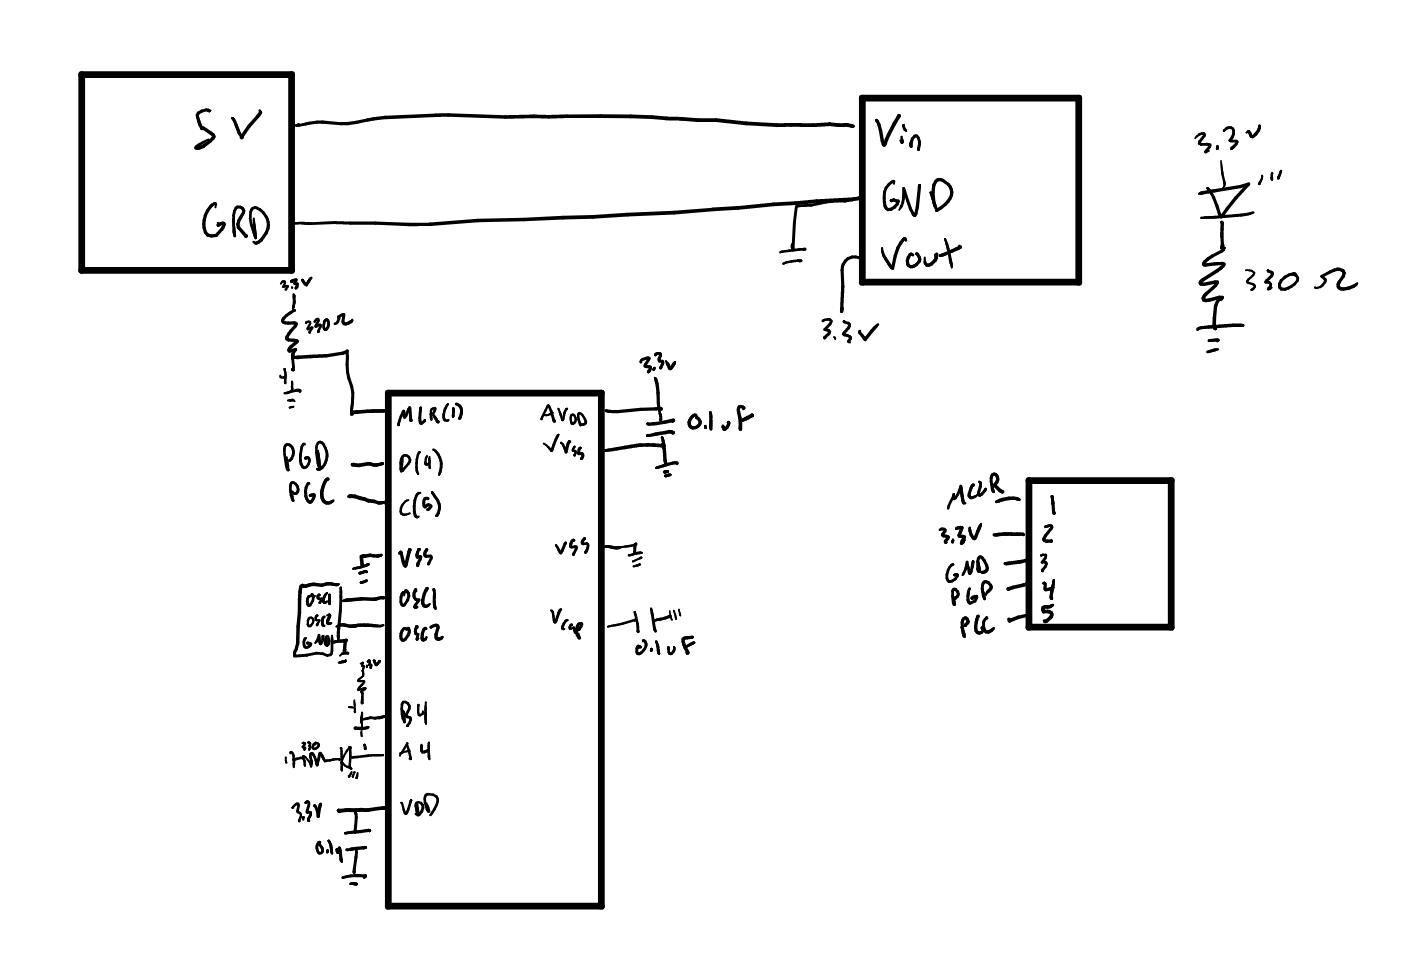 5V
GRD
Vin
GND
Vout
3.3V
3.3V
330Ω
3.3V
330Ω
MLR(1)
PGD
D(4)
PGC
C(5)
VSS
OSC1
OSC2
GND
OSC1
OSC2
3.3V
B4
330
A4
3.3V
VDD
0.1μ
3.3V
AVDD
VVSS
0.1uF
VSS
Vcap
0.1uF
MCLR 1
3.3V 2
GND 3
PGD 4
PGC 5